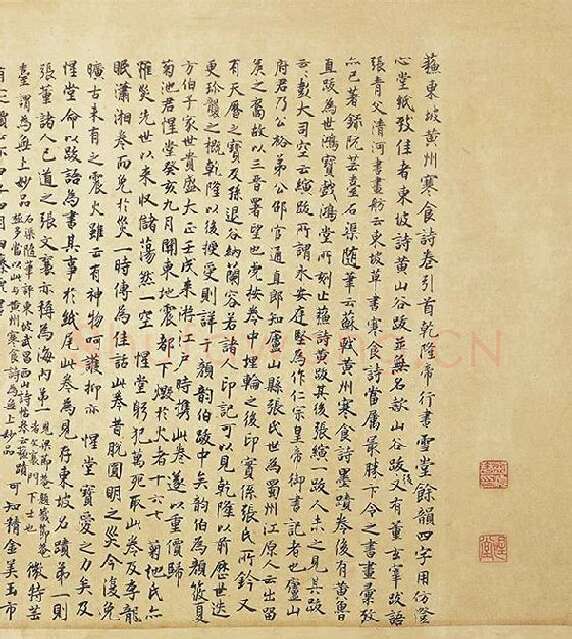 蘇東坡黃州寒食詩卷引首乾隆帝行書雪堂餘韻四字用仿澄
心堂紙致佳者東坡詩黃山谷跋並無名款山谷跋後又有董玄宰跋語
張青父清河書畫舫云東坡草書寒食詩當屬最勝卞令之書畫彙攷
亦已著錄阮芸臺石渠隨筆云蘇軾黃州寒食詩墨蹟卷後有黃魯
直跋為世鴻寶戲鴻堂所刻止蘇詩黃跋其後張縯一跋人未之見其跋
云々彭大司空云縯跋所謂永安庭堅為作仁宗皇帝御書記者也廬山
府君乃公裕弟公邵官通直郎知廬山縣張氏世為蜀州江原人云出留
侯之裔故以三晉署望也余按卷中埋輪之後印實係張氏所鈐又
有天曆之寶及孫退谷納蘭容若諸人印記可以見乾隆以前歷世迭
更珍襲之概乾隆以後授受則詳于顏韻伯跋中矣韵伯為顏筱夏
方伯子家世貴盛大正壬戌來游江戶時攜此卷遂以重價歸
菊池君惺堂癸亥九月關東地震都下燬於火者十六七菊池氏亦
罹災先世以來收儲蕩然一空 惺堂躬犯萬死取此卷及李龍
眠瀟湘卷而免於災一時傳為佳話此卷昔脫圓明之災今復免
曠古未有之震火雖云有神物呵護抑亦 惺堂寶愛之力矣及
惺堂命以跋語為書其事於紙尾此卷為見存東坡名蹟第一則
張董諸人已道之張文襄亦稱為海內第一 見梁節庵題箴節庵者文襄門下士也 微特芸
臺謂為無上妙品 石渠隨筆評東坡武昌西山詩帖 此與黃州寒食詩為無上妙品 可知精金美玉市